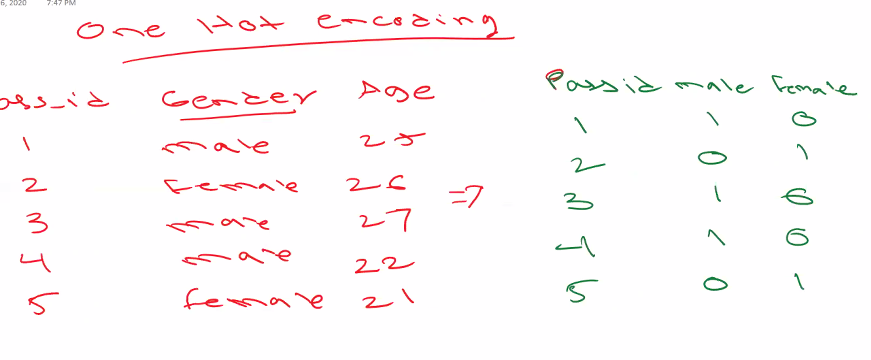 6, 2020 7:47 PM
One Hot encoding
ass_id Gender Age
1 male 25
2 Female 26
3 male 27
4 male 22
5 female 21
=>
Passid male Female
1 1 0
2 0 1
3 1 0
4 1 0
5 0 1